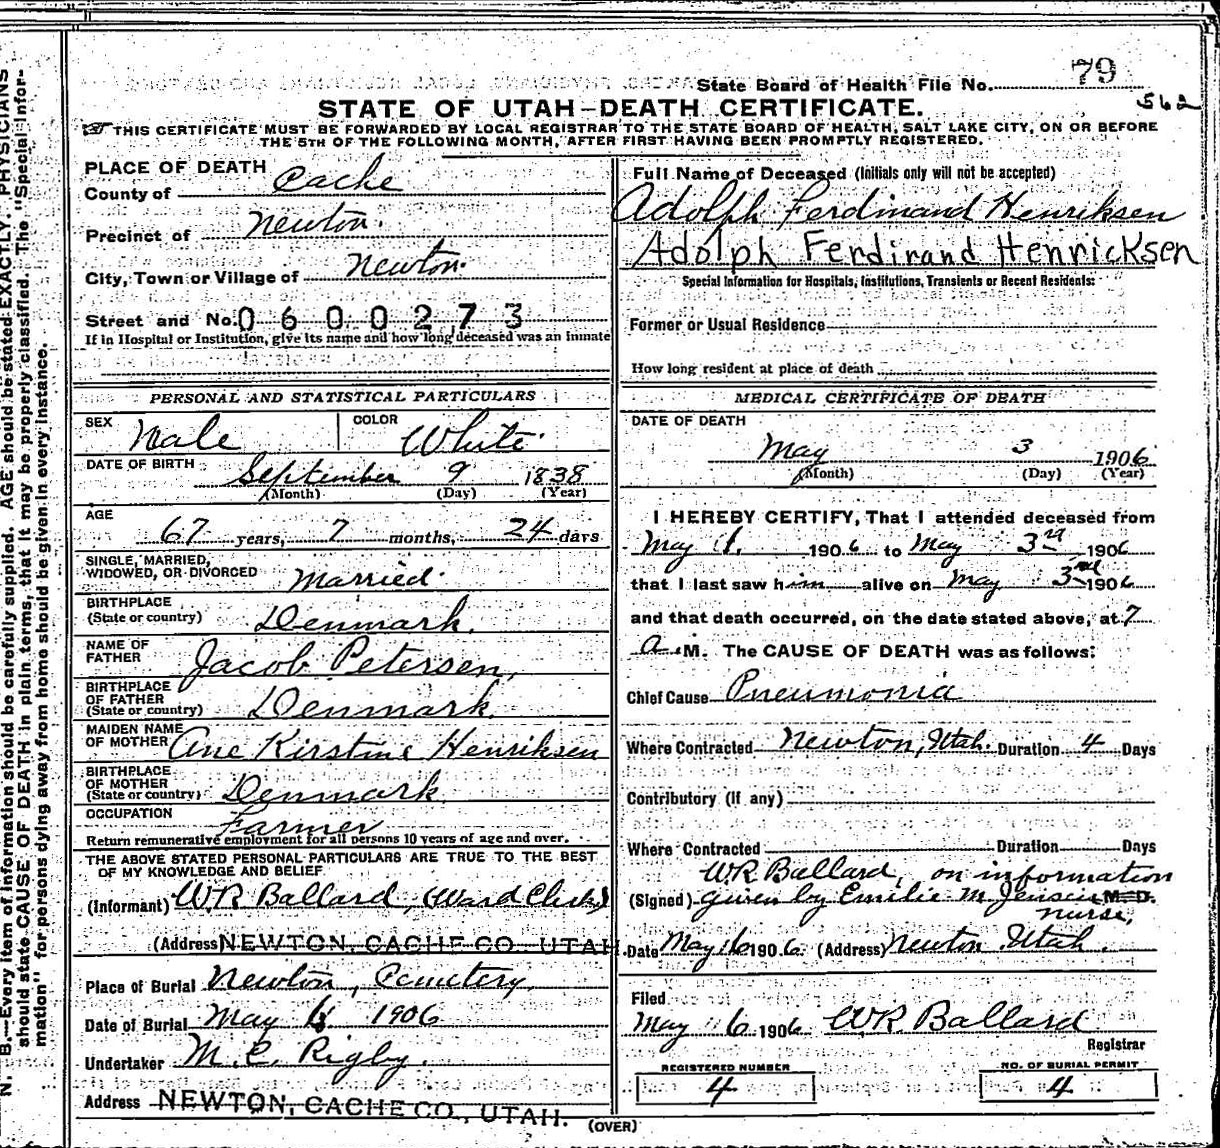 79
State Board of Health File No.
562
STATE OF UTAH—DEATH CERTIFICATE.
THIS CERTIFICATE MUST BE FORWARDED BY LOCAL REGISTRAR TO THE STATE BOARD OF HEALTH, SALT LAKE CITY, ON OR BEFORE
THE 5TH OF THE FOLLOWING MONTH, AFTER FIRST HAVING BEEN PROMPTLY REGISTERED.
PLACE OF DEATH
County of Cache
Precinct of Newton.
City, Town or Village of Newton.
Street and No. 0600273
If in Hospital or Institution, give its name and how long deceased was an inmate
PERSONAL AND STATISTICAL PARTICULARS
SEX Male COLOR White.
DATE OF BIRTH September 9 1838
(Month) (Day) (Year)
AGE
67 years, 7 months, 24 days
SINGLE, MARRIED,
WIDOWED, OR DIVORCED Married.
BIRTHPLACE
(State or country) Denmark.
NAME OF
FATHER Jacob Petersen,
BIRTHPLACE
OF FATHER
(State or country) Denmark.
MAIDEN NAME
OF MOTHER Ane Kirstine Henriksen
BIRTHPLACE
OF MOTHER
(State or country) Denmark
OCCUPATION
Farmer
Return remunerative employment for all persons 10 years of age and over.
THE ABOVE STATED PERSONAL PARTICULARS ARE TRUE TO THE BEST
OF MY KNOWLEDGE AND BELIEF.
(Informant) W.R. Ballard, (Ward Clerk)
(Address NEWTON, CACHE CO., UTAH.
Place of Burial Newton, Cemetery.
Date of Burial May 6 1906
Undertaker M. C. Rigby.
Address NEWTON, CACHE CO., UTAH.
Full Name of Deceased (Initials only will not be accepted)
Adolph Ferdinand Henriksen
Adolph Ferdinand Henricksen
Special Information for Hospitals, Institutions, Transients or Recent Residents:
Former or Usual Residence
How long resident at place of death
MEDICAL CERTIFICATE OF DEATH
DATE OF DEATH
May 3 1906
(Month) (Day) (Year)
I HEREBY CERTIFY, That I attended deceased from
May 1. 1906 to May 3rd 1906
that I last saw him alive on May 3rd 1906
and that death occurred, on the date stated above, at 7
a.M. The CAUSE OF DEATH was as follows:
Chief Cause Pneumonia
Where Contracted Newton, Utah. Duration 4 Days
Contributory (If any)
Where Contracted Duration Days
W.R. Ballard, on information
(Signed) given by Emilie M. Jensen M.D.
nurse,
Date May 6 1906 (Address) Newton Utah.
Filed
May 6 1906 W.R. Ballard
Registrar
REGISTERED NUMBER
4
NO. OF BURIAL PERMIT
4
(OVER)
N. B.—Every item of information should be carefully supplied. AGE should be stated EXACTLY. PHYSICIANS
should state CAUSE OF DEATH in plain terms, that it may be properly classified. The "Special Infor-
mation" for persons dying away from home should be given in every instance.